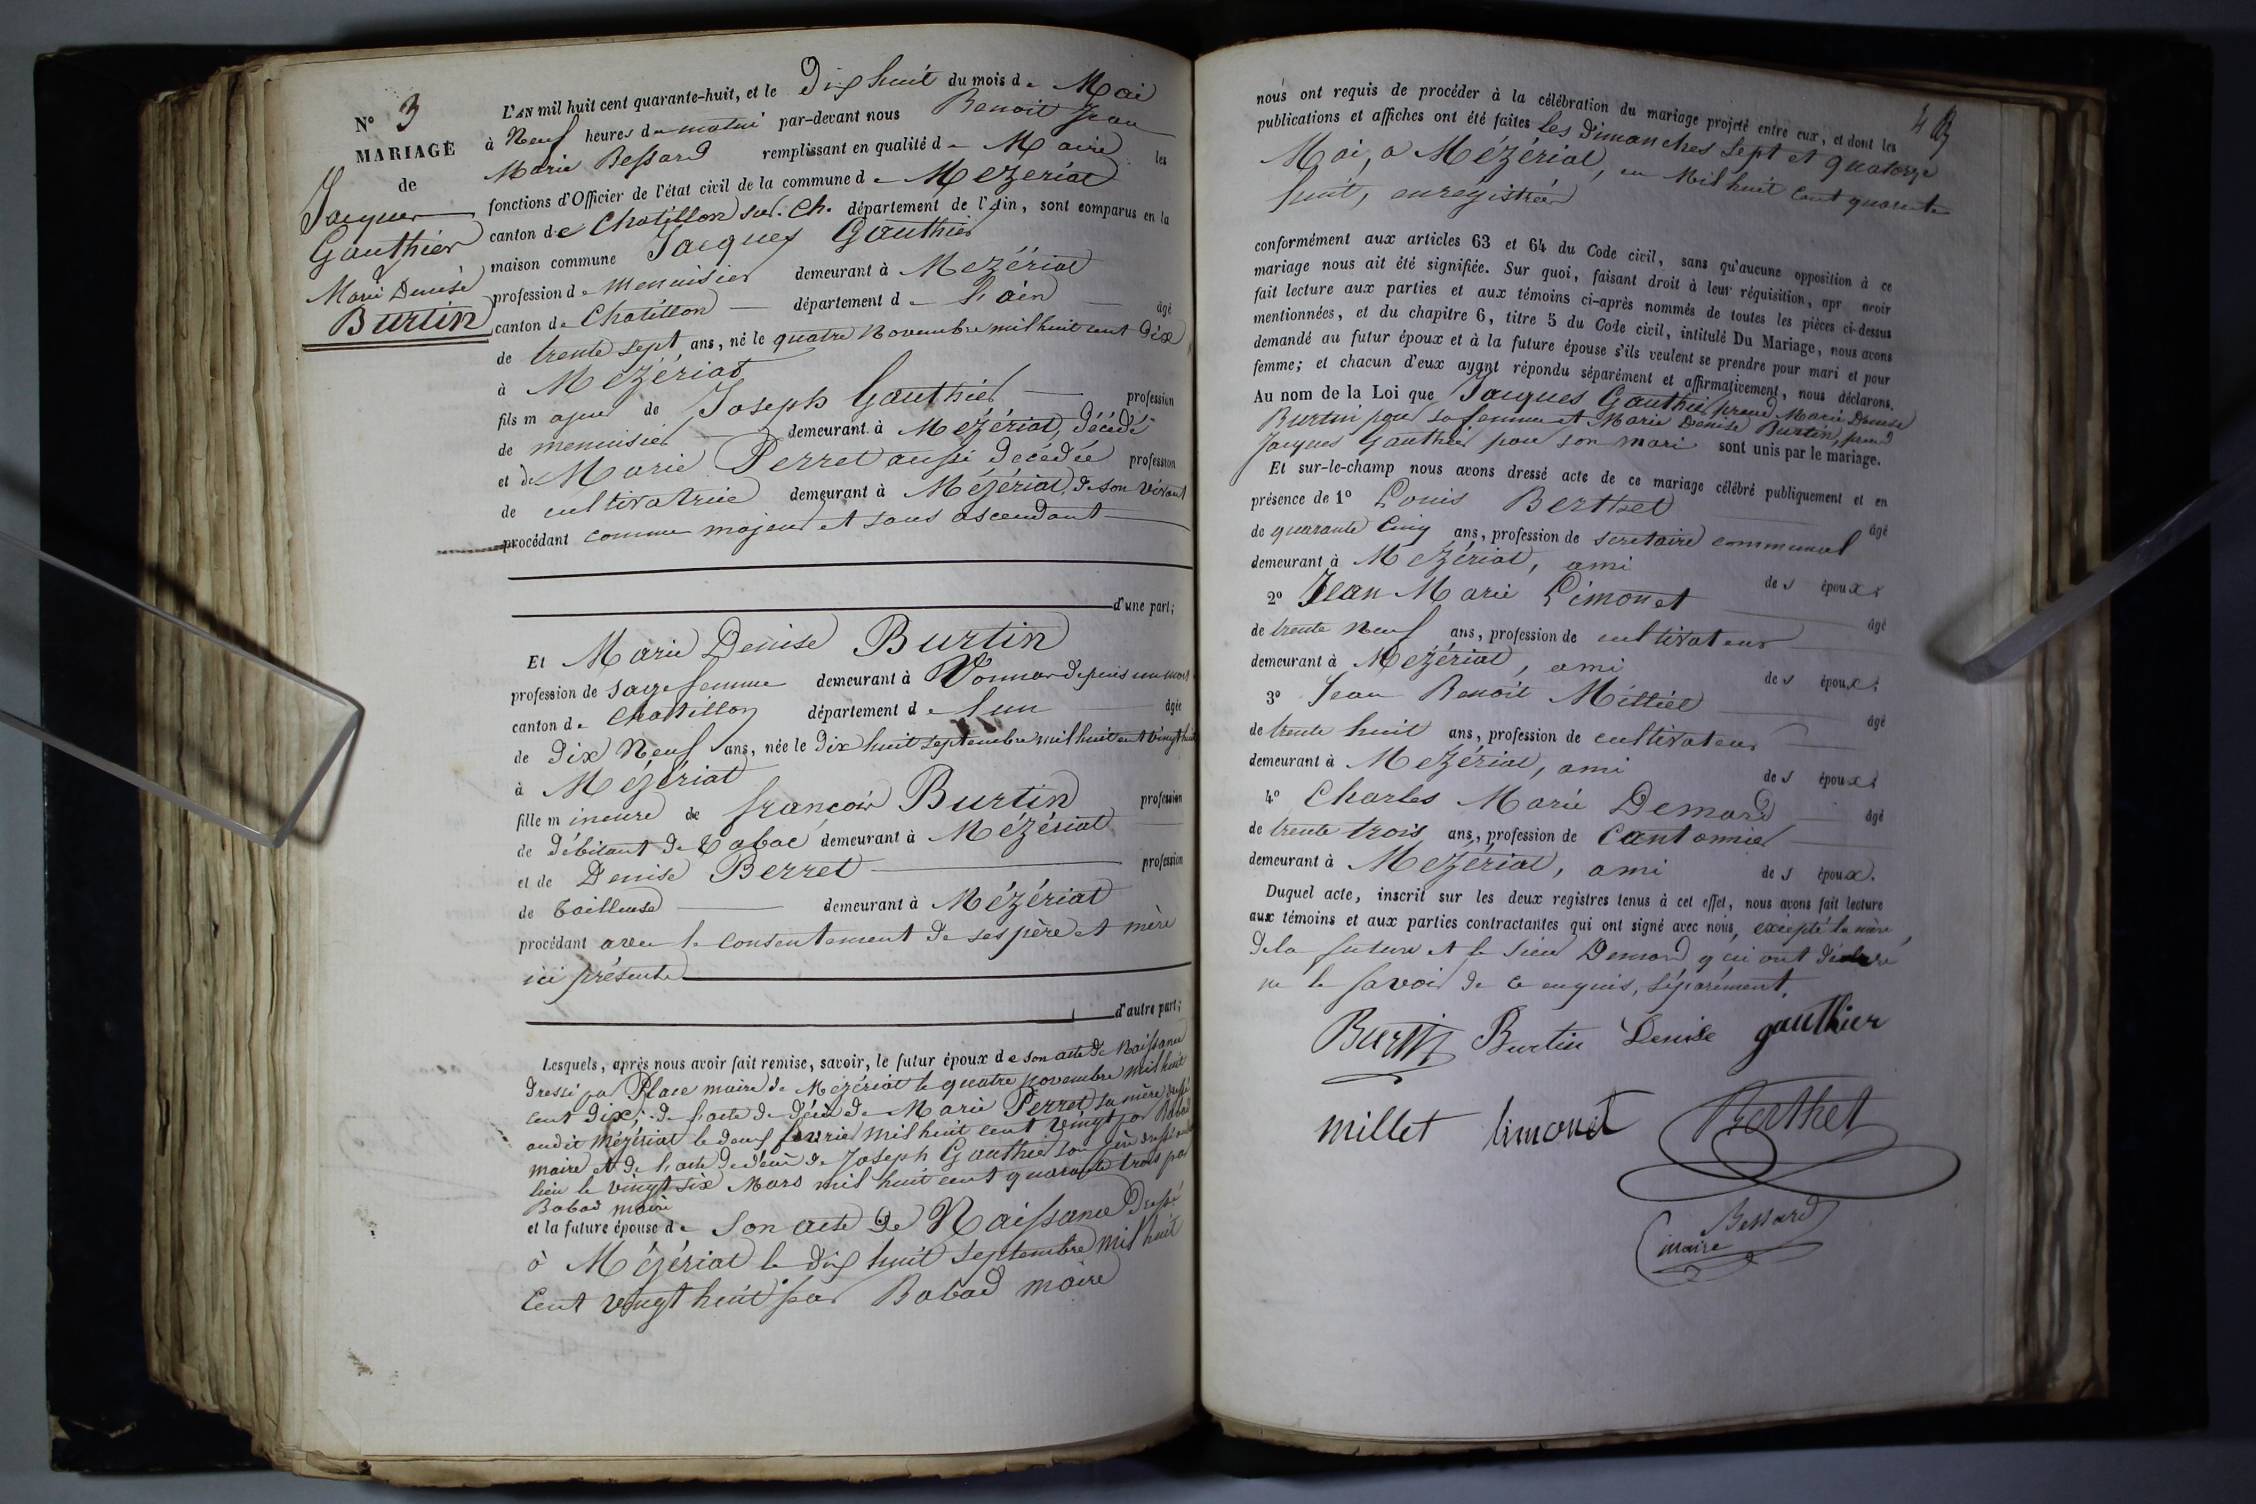 N° 3
MARIAGE
de
Jacques
Gauthier
Marie Denise
Burtin
L'AN mil huit cent quarante-huit, et le Dix huit du mois de Mai
à Neuf heures du matin par-devant nous Benoit Jean
Marie Bessard remplissant en qualité de Maire les
fonctions d'Officier de l'état civil de la commune de Mézériat
canton de Chatillon sur Ch. département de l'Ain, sont comparus en la
maison commune Jacques Gauthier
profession de menuisier demeurant à Mézériat
canton de Chatillon département de L'ain âgé
de trente sept ans, né le quatre Novembre mil huit cent Dix
à Mézériat
fils majeur de Joseph Gauthier profession
de menuisier demeurant à Mézériat, décédé
et de Marie Perret aussi décédée profession
de cultivatrice demeurant à Mézériat, de son vivant
procédant comme majeur et sans ascendant
d'une part;
Et Marie Denise Burtin
profession de sage femme demeurant à Vonnas depuis un mois
canton de Chatillon département de l'ain âgée
de Dix Neuf ans, née le Dix huit septembre mil huit cent vingt huit
à Mézériat
fille mineure de françois Burtin profession
de débitant de Tabac demeurant à Mézériat
et de Denise Berret profession
de Tailleuse demeurant à Mézériat
procédant avec le consentement de ses père et mère
ici présents
d'autre part;
Lesquels, après nous avoir fait remise, savoir, le futur époux de son acte de Naissance
dressé par Place maire de Mézériat le quatre novembre mil huit
cent dix; de l'acte de décès de Marie Perret sa mère dressé
audit Mézériat le deux fevrier mil huit cent vingt par Babad
maire et de l'acte de décès de Joseph Gauthier son père dressé audit
lieu le vingt six Mars mil huit cent quarante trois par
Babad maire
et la future épouse de Son acte de Naissance Dressé
à Mézériat le dix huit Septembre mil huit
Cent vingt huit par Babad maire
nous ont requis de procéder à la célébration du mariage projeté entre eux, et dont les
publications et affiches ont été faites les dimanches Sept et quatorze
Mai, a Mézériat, en Mil huit Cent quarante
huit, enregistrées
conformément aux articles 63 et 64 du Code civil, sans qu'aucune opposition à ce
mariage nous ait été signifiée. Sur quoi, faisant droit à leur réquisition, apr avoir
fait lecture aux parties et aux témoins ci-après nommés de toutes les pièces ci-dessus
mentionnées, et du chapitre 6, titre 5 du Code civil, intitulé Du Mariage, nous avons
demandé au futur époux et à la future épouse s'ils veulent se prendre pour mari et pour
femme; et chacun d'eux ayant répondu séparément et affirmativement, nous déclarons.
Au nom de la Loi que Jacques Gauthier prend Marie Denise
Burtin pour sa femme et Marie Denise Burtin, prend
Jacques Gauthier pour son mari sont unis par le mariage.
Et sur-le-champ nous avons dressé acte de ce mariage célébré publiquement et en
présence de 1° Louis Berthet âgé
de quarante Cinq ans, profession de secretaire communal
demeurant à Mézériat, ami des époux;
2° Jean Marie Limonet âgé
de trente Neuf ans, profession de cultivateur
demeurant à Mézériat, ami des époux;
3° Jean Benoit Milliet âgé
de trente huit ans, profession de cultivateur
demeurant à Mézériat, ami des époux;
4° Charles Marie Demard âgé
de trente trois ans, profession de Cantonnier
demeurant à Mézériat, ami des époux.
Duquel acte, inscrit sur les deux registres tenus à cet effet, nous avons fait lecture
aux témoins et aux parties contractantes qui ont signé avec nous, excepté la mère
de la future et le sieur Demard qui ont déclaré
ne le savoir de ce enquis, séparément.
Burtin Burtin Denise gauthier
millet limonet Berthet
Bessard
maire